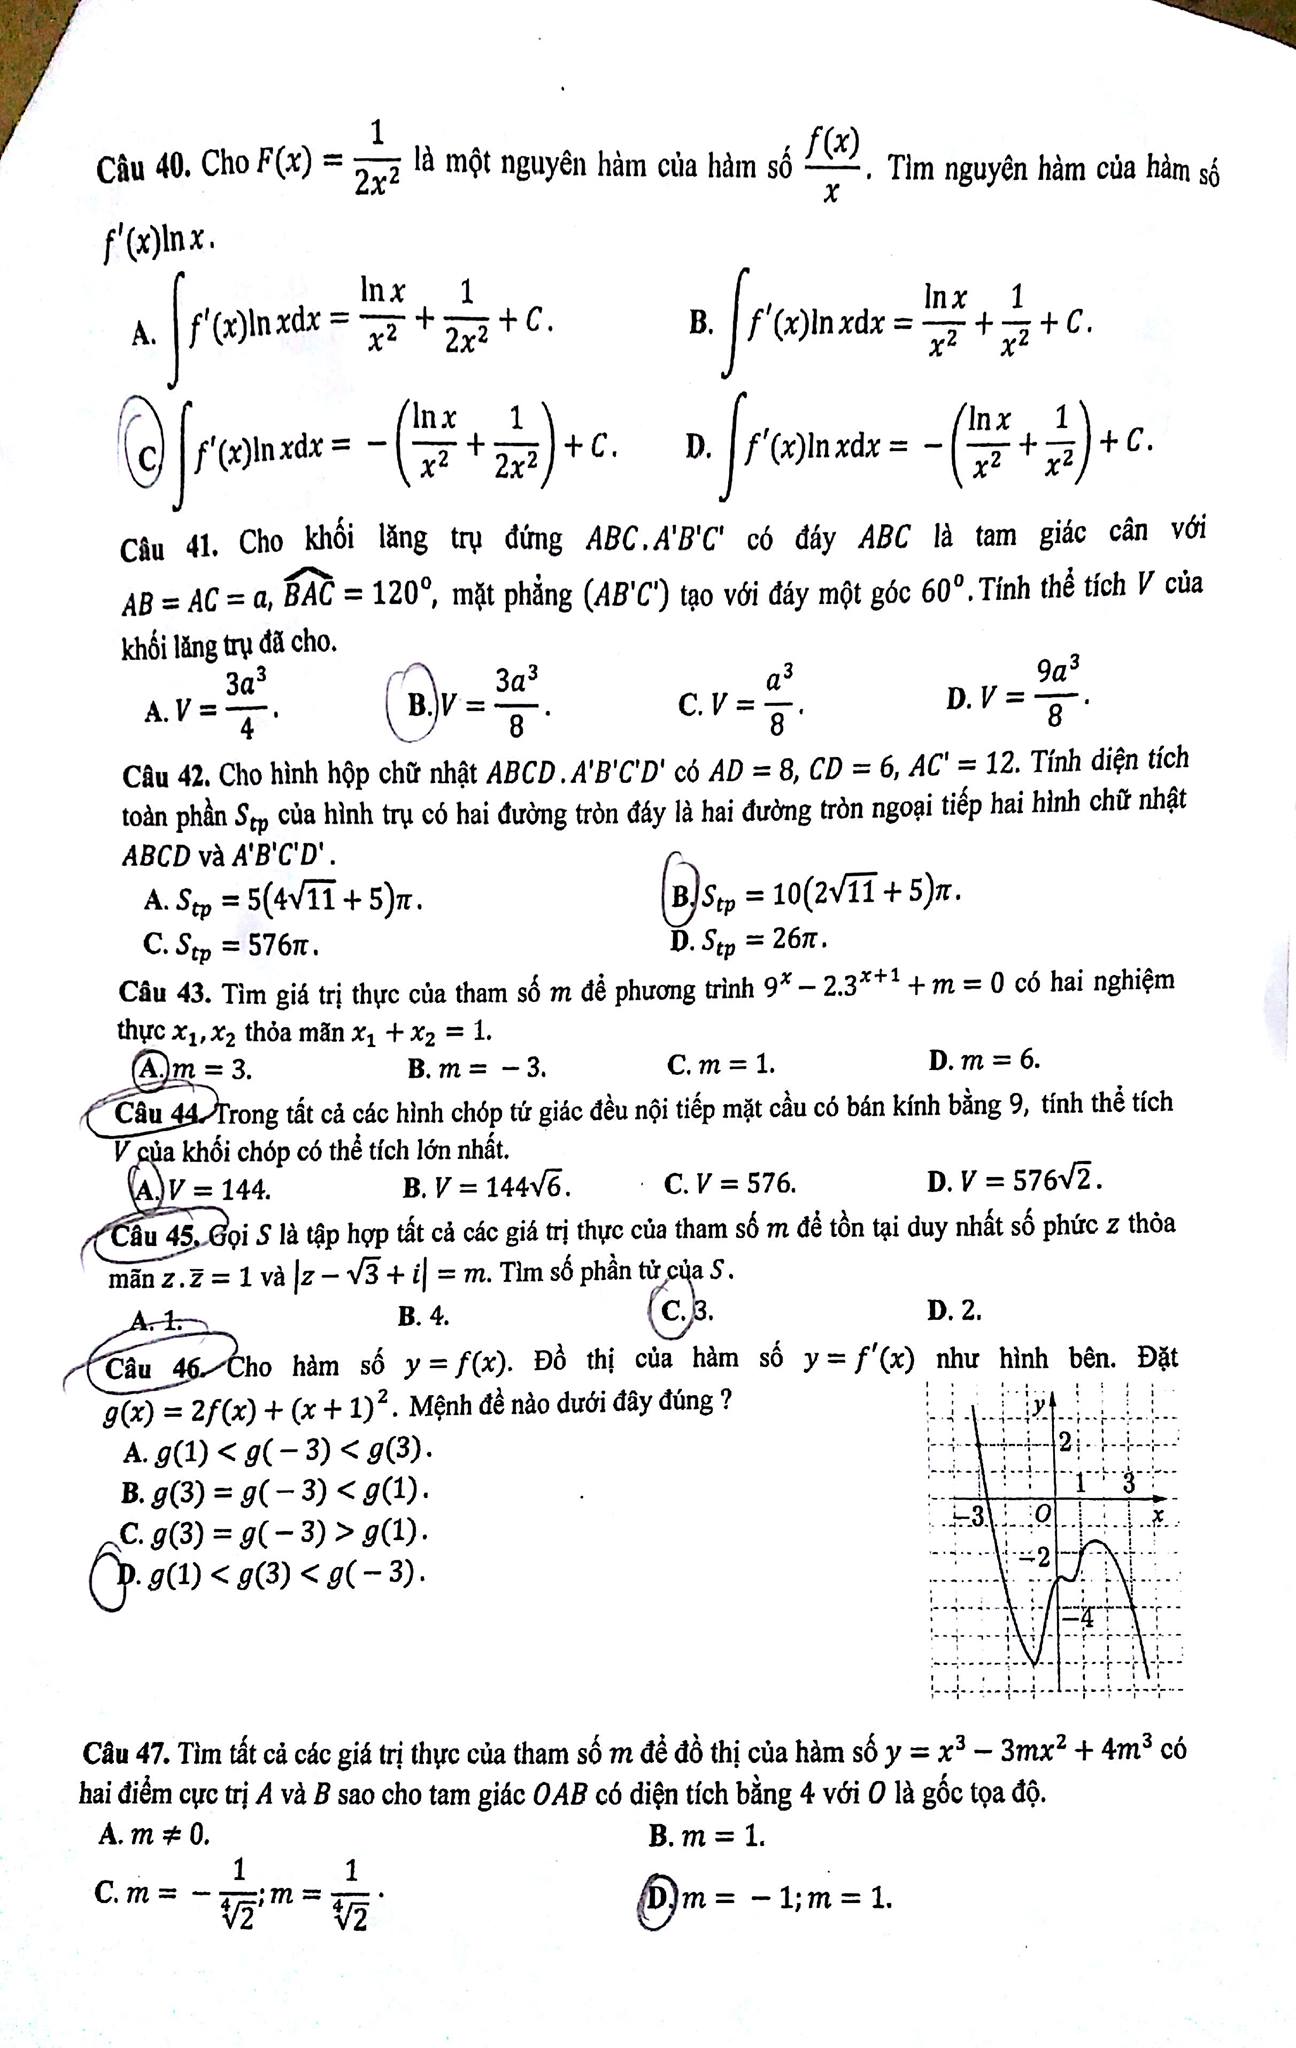 Câu 40. Cho F(x) = 1/(2x²) là một nguyên hàm của hàm số f(x)/x. Tìm nguyên hàm của hàm số
f'(x)ln x.
A. ∫f'(x)ln xdx = ln x/x² + 1/(2x²) + C. B. ∫f'(x)ln xdx = ln x/x² + 1/x² + C.
C. ∫f'(x)ln xdx = −(ln x/x² + 1/(2x²)) + C. D. ∫f'(x)ln xdx = −(ln x/x² + 1/x²) + C.
Câu 41. Cho khối lăng trụ đứng ABC.A'B'C' có đáy ABC là tam giác cân với
AB = AC = a, BAC = 120⁰, mặt phẳng (AB'C') tạo với đáy một góc 60⁰. Tính thể tích V của
khối lăng trụ đã cho.
A. V = 3a³/4. B. V = 3a³/8. C. V = a³/8. D. V = 9a³/8.
Câu 42. Cho hình hộp chữ nhật ABCD.A'B'C'D' có AD = 8, CD = 6, AC' = 12. Tính diện tích
toàn phần Stp của hình trụ có hai đường tròn đáy là hai đường tròn ngoại tiếp hai hình chữ nhật
ABCD và A'B'C'D'.
A. Stp = 5(4√11 + 5)π. B. Stp = 10(2√11 + 5)π.
C. Stp = 576π. D. Stp = 26π.
Câu 43. Tìm giá trị thực của tham số m để phương trình 9ˣ − 2.3ˣ⁺¹ + m = 0 có hai nghiệm
thực x₁, x₂ thỏa mãn x₁ + x₂ = 1.
A. m = 3. B. m = − 3. C. m = 1. D. m = 6.
Câu 44. Trong tất cả các hình chóp tứ giác đều nội tiếp mặt cầu có bán kính bằng 9, tính thể tích
V của khối chóp có thể tích lớn nhất.
A. V = 144. B. V = 144√6. C. V = 576. D. V = 576√2.
Câu 45. Gọi S là tập hợp tất cả các giá trị thực của tham số m để tồn tại duy nhất số phức z thỏa
mãn z.z̄ = 1 và |z − √3 + i| = m. Tìm số phần tử của S.
A. 1. B. 4. C. 3. D. 2.
Câu 46. Cho hàm số y = f(x). Đồ thị của hàm số y = f'(x) như hình bên. Đặt
g(x) = 2f(x) + (x + 1)². Mệnh đề nào dưới đây đúng ?
A. g(1) < g(− 3) < g(3).
B. g(3) = g(− 3) < g(1).
C. g(3) = g(− 3) > g(1).
D. g(1) < g(3) < g(− 3).
y
2
1 3
−3 O x
−2
−4
Câu 47. Tìm tất cả các giá trị thực của tham số m để đồ thị của hàm số y = x³ − 3mx² + 4m³ có
hai điểm cực trị A và B sao cho tam giác OAB có diện tích bằng 4 với O là gốc tọa độ.
A. m ≠ 0. B. m = 1.
C. m = − 1/⁴√2; m = 1/⁴√2. D. m = − 1; m = 1.